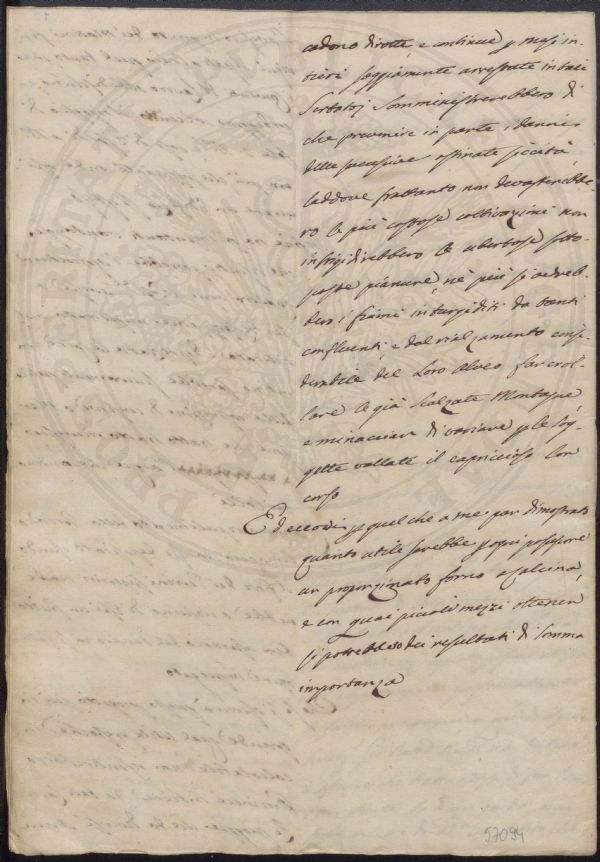 cadono dirotte, e continue p mesi in-
tieri saggiamente arrestate in tali
Serbatoj somministrerebbero di
che prevenire in parte i danni
delle successive ostinate siccità,
laddove frattanto non devasterebbe-
ro le più costose coltivazioni non
insrigidirebbero le ubertose sotto-
poste pianure, nè più si vedreb-
bero i fiumi inturgiditi da tanti
confluenti, e dal rialzamento consi-
derabile del Loro alveo far crol-
lare le già scalzate Montagne,
e minacciare di variare p le sog-
gette vallate il capriccioso lor
corso
Ed eccovi p quel che a me par dimostrato
quanto utile sarebbe p ogni possessore
un proporzionato forno a calcina,
e con quai piccoli mezzi ottener
si potrebbero dei resultati di somma
importanza
57094